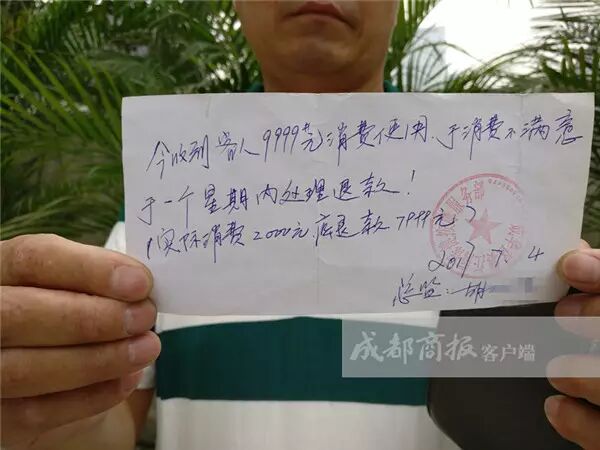 今收到客人9999元消费使用、于消费不满意
于一个星期内处理退款！
(实际消费2000元应退款7999元)
服务部
2017.7.4
总监:胡
成都商报客户端